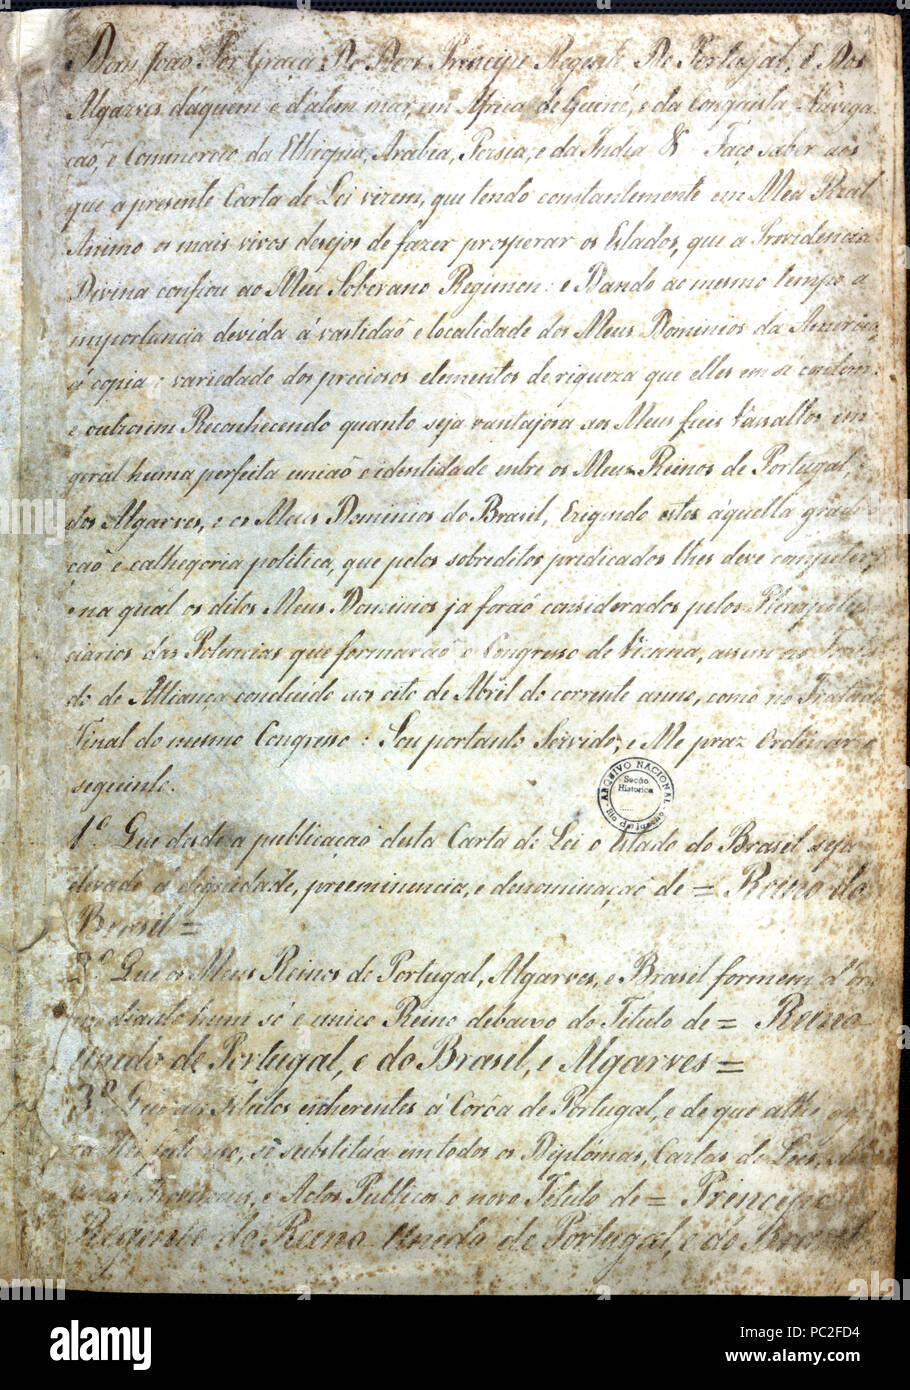 Dom João Por Graça De Deos Principe Regente De Portugal, E Dos
Algarves dáquem e dálem mar, em Africa de Guiné, e da Conquista Navega-
caõ, e Commercio da Ethiopia, Arabia, Persia, e da India & Faço saber aos
que a presente Carta de Lei virem, que tendo constantemente em Meu Real
Animo os mais vivos desejos de fazer prosperar os Estados, que a Providencia
Divina confiou ao Meu Soberano Regimen: e Dando ao mesmo tempo a
importancia devida á vastidaõ e localidade dos Meus Dominios da America,
á copia e variedade dos preciosos elementos de riqueza que elles em si contem:
e outrosim Reconhecendo quanto seja vantajosa aos Meus fieis Vassallos em
geral huma perfeita uniaõ e identidade entre os Meus Reinos de Portugal,
dos Algarves, e os Meus Dominios do Brasil, Erigindo estes áquella gradua-
çaõ e cathegoria politica, que pelos sobreditos predicados lhes deve competir,
e na qual os ditos Meus Dominios ja foraõ considerados pelos Plenipoten-
ciarios das Potencias que formaraõ o Congresso de Vienna, assim no Trata-
do de Alliança concluido aos oito de Abril do corrente anno, como no Tratado
Final do mesmo Congresso: Sou portanto Servido, e Me praz Ordenar o
seguinte.
ARQUIVO NACIONAL
Secão
Historica
Rio de Janeiro
1º Que desde a publicaçaõ desta Carta de Lei o Estado do Brasil seja
elevado á dignidade, preeminencia, e denominaçaõ de = Reino do
Brasil =
2º Que os Meus Reinos de Portugal, Algarves, e Brasil formem d'óra
em diante hum só e unico Reino debaixo do Titulo de = Reino
Unido de Portugal, e do Brasil, e Algarves =
3º Que aos Titulos inherentes á Corôa de Portugal, e de que athe ago-
ra Hei feito uso, se substitúa em todos os Diplomas, Cartas de Leis, Al-
varás, Provisoens, e Actos Publicos o novo Titulo de = Principe
Regente do Reino Unido de Portugal, e do Brasil
alamy
PC2FD4
www.alamy.com